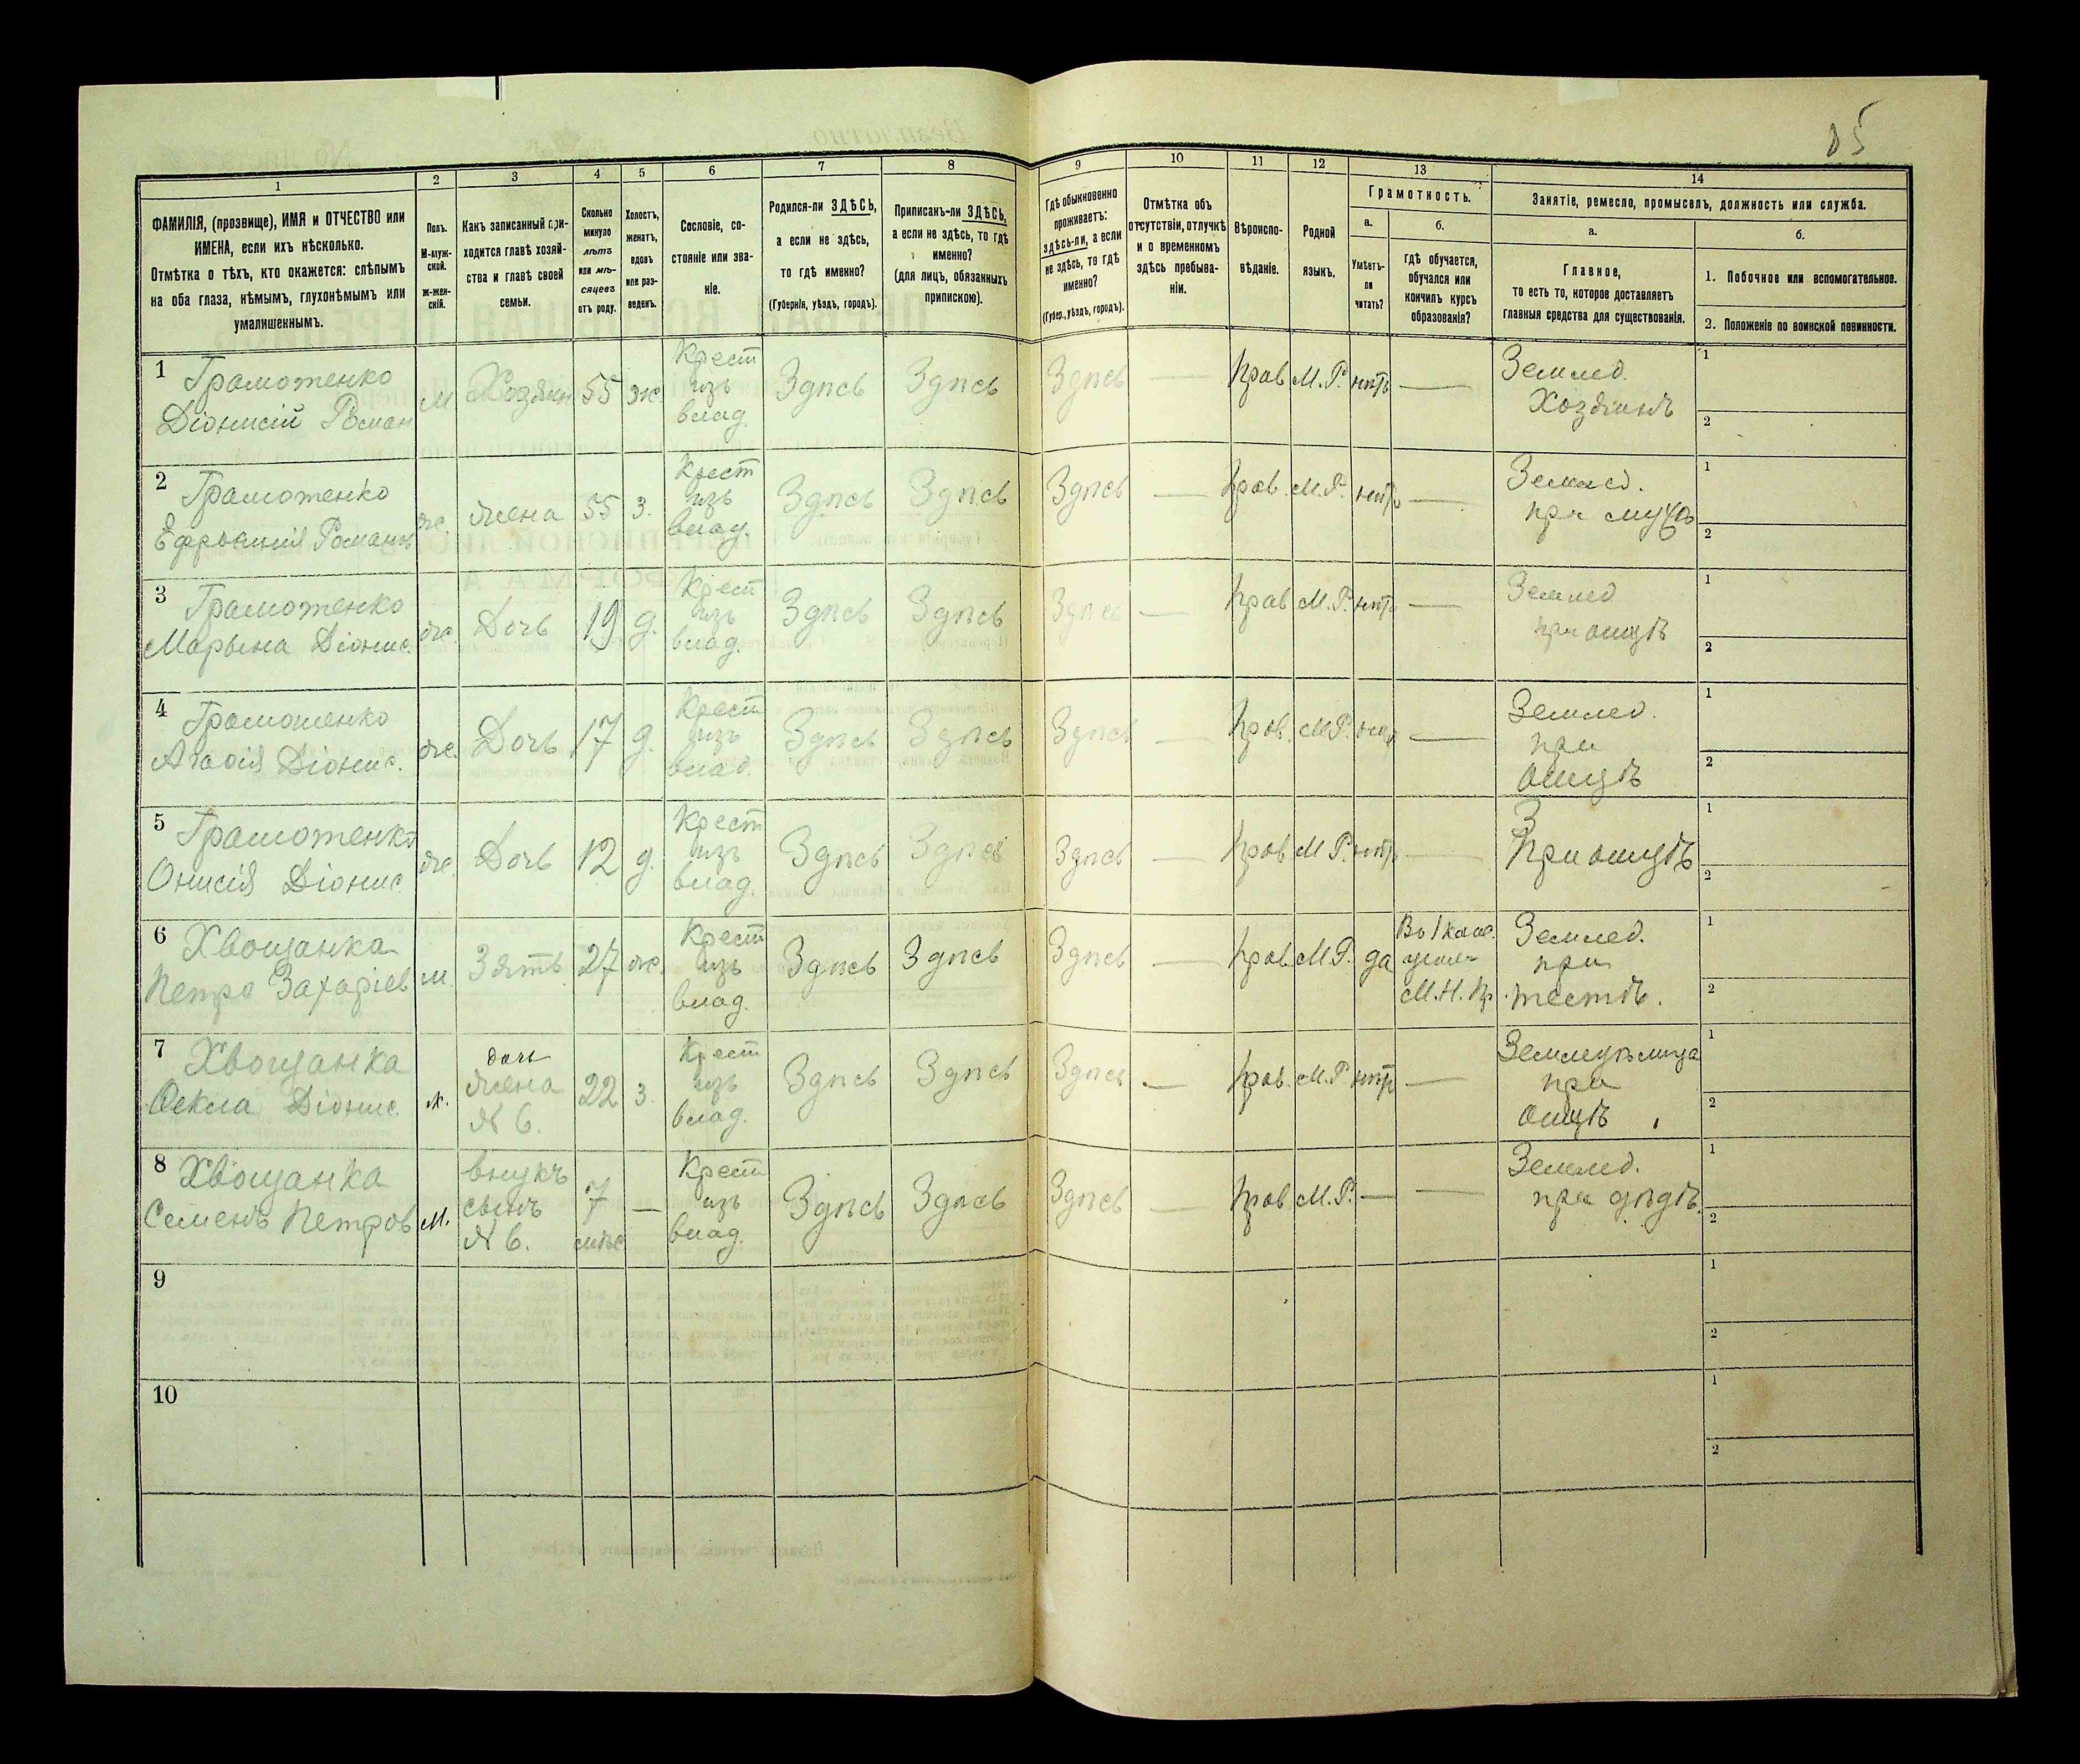 85
1
2
3
4
5
6
7
8
9
10
11
12
13
14
ФАМИЛІЯ, (прозвище), ИМЯ и ОТЧЕСТВО или
ИМЕНА, если ихъ нѣсколько.
Отмѣтка о тѣхъ, кто окажется: слѣпымъ
на оба глаза, нѣмымъ, глухонѣмымъ или
умалишеннымъ.
Полъ.
М-муж-
ской.
Ж-жен-
скій.
Какъ записанный при-
ходится главѣ хозяй-
ства и главѣ своей
семьи.
Сколько
минуло
лѣтъ
или мѣ-
сяцевъ
отъ роду.
Холостъ,
женатъ,
вдовъ
или раз-
веденъ.
Сословіе, со-
стояніе или зва-
ніе.
Родился-ли ЗДѢСЬ,
а если не здѣсь,
то гдѣ именно?
(Губернія, уѣздъ, городъ).
Приписанъ-ли ЗДѢСЬ,
а если не здѣсь, то гдѣ
именно?
(для лицъ, обязанныхъ
припискою).
Гдѣ обыкновенно
проживаетъ:
здѣсь-ли, а если
не здѣсь, то гдѣ
именно?
(Губер., уѣздъ, городъ).
Отмѣтка объ
отсутствіи, отлучкѣ
и о временномъ
здѣсь пребыва-
ніи.
Вѣроиспо-
вѣданіе.
Родной
языкъ.
Грамотность.
а.
Умѣетъ-
ли
читать?
б.
гдѣ обучается,
обучался или
кончилъ курсъ
образованія?
Занятіе, ремесло, промыселъ, должность или служба.
а.
Главное,
то есть то, которое доставляетъ
главныя средства для существованія.
б.
1. Побочное или вспомогательное.
2. Положеніе по воинской повинности.
1 Грамотенко
Діонисій Роман
м Хозяин 55 ж.
Крест
изъ
влад.
Здѣсь Здѣсь Здѣсь — Прав М.Р. нѣтъ —
Землед.
Хозяинъ
1
2
2 Грамотенко
Ефросинія Романов
ж. жена 55 з.
Крест
изъ
влад.
Здѣсь Здѣсь Здѣсь — Прав. М.Р. нѣтъ —
Землед.
при мужѣ
1
2
3 Грамотенко
Марьина Діонис.
ж. Дочь 19 д.
Крест
изъ
влад.
Здѣсь Здѣсь Здѣсь — Прав М.Р. нѣтъ —
Землед
при отцѣ
1
2
4 Грамотенко
Агафія Діонис.
ж. Дочь 17 д.
Крест
изъ
влад.
Здѣсь Здѣсь Здѣсь — Прав. М.Р. —
Землед.
при
отцѣ
1
2
5 Грамотенко
Онисія Діонис.
ж. Дочь 12 д.
Крест
изъ
влад.
Здѣсь Здѣсь Здѣсь — Прав М.Р. нѣтъ —
З
При отцѣ
1
2
6 Хвощанка
Петро Захаріев
м. Зять 27 ж.
Крест
изъ
влад.
Здѣсь Здѣсь Здѣсь — Прав М.Р. да
М.Н.Пр.
Землед.
при
тестѣ.
1
2
7 Хвощанка
Ѳекла Діонис.
ж.
дочь
жена
N 6.
22 з.
Крест
изъ
влад.
Здѣсь Здѣсь Здѣсь — Прав. М.Р. нѣтъ —
при
отцѣ
1
2
8 Хвощанка
Семенъ Петров
м.
внукъ
сынъ
N 6.
7
мѣс
—
Крест
изъ
влад.
Здѣсь Здѣсь Здѣсь — Прав М.Р. — —
Землед.
при дѣдѣ.
1
2
9
1
2
10
1
2